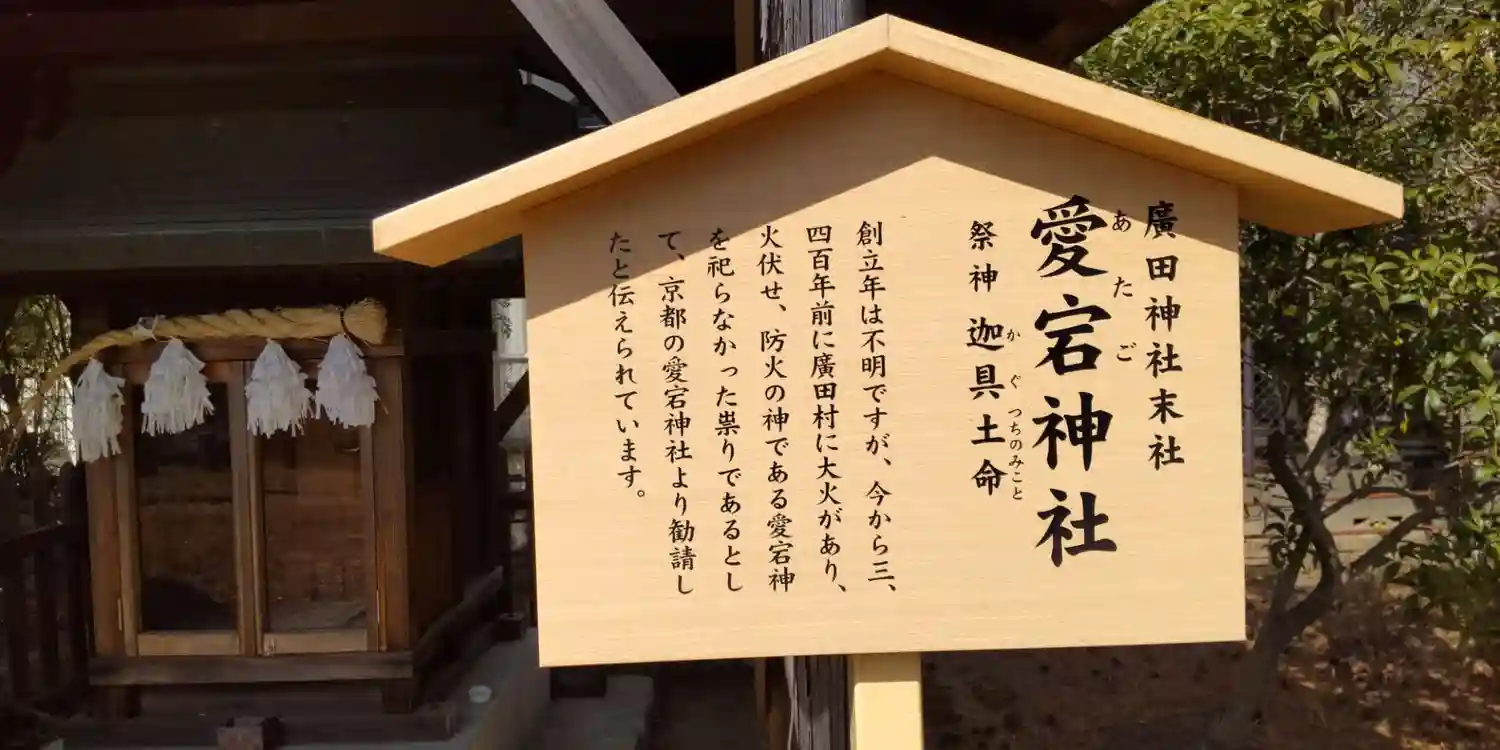 廣田神社末社
愛宕神社
あたご
祭神 迦具土命
かぐつちのみこと
創立年は不明ですが、今から三、
四百年前に廣田村に大火があり、
火伏せ、防火の神である愛宕神
を祀らなかった祟りであるとし
て、京都の愛宕神社より勧請し
たと伝えられています。